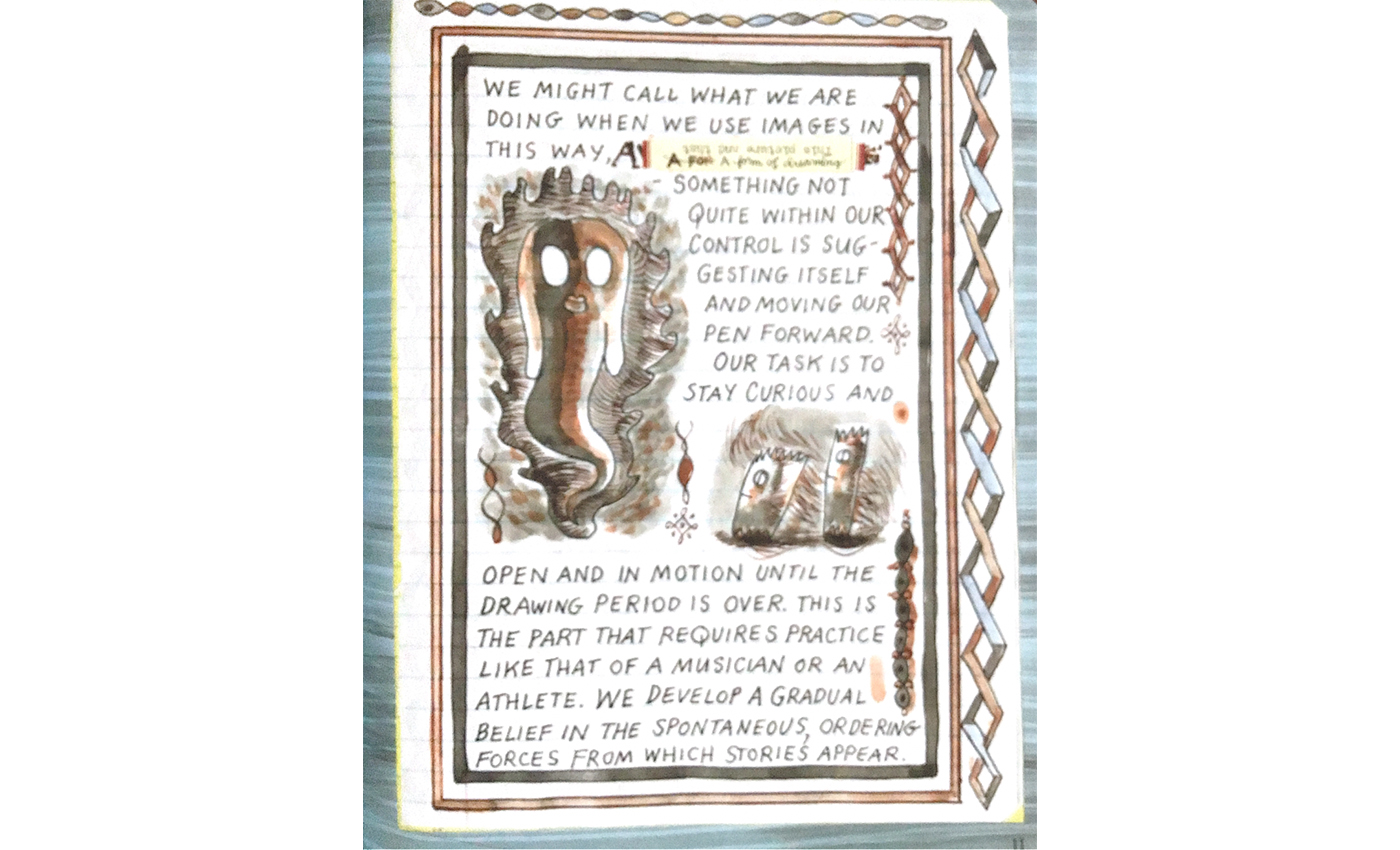 WE MIGHT CALL WHAT WE ARE
DOING WHEN WE USE IMAGES IN
THIS WAY, A
This picture was that
A FOR A form of dreaming
- SOMETHING NOT
QUITE WITHIN OUR
CONTROL IS SUG-
GESTING ITSELF
AND MOVING OUR
PEN FORWARD.
OUR TASK IS TO
STAY CURIOUS AND
OPEN AND IN MOTION UNTIL THE
DRAWING PERIOD IS OVER. THIS IS
THE PART THAT REQUIRES PRACTICE
LIKE THAT OF A MUSICIAN OR AN
ATHLETE. WE DEVELOP A GRADUAL
BELIEF IN THE SPONTANEOUS, ORDERING
FORCES FROM WHICH STORIES APPEAR.
11